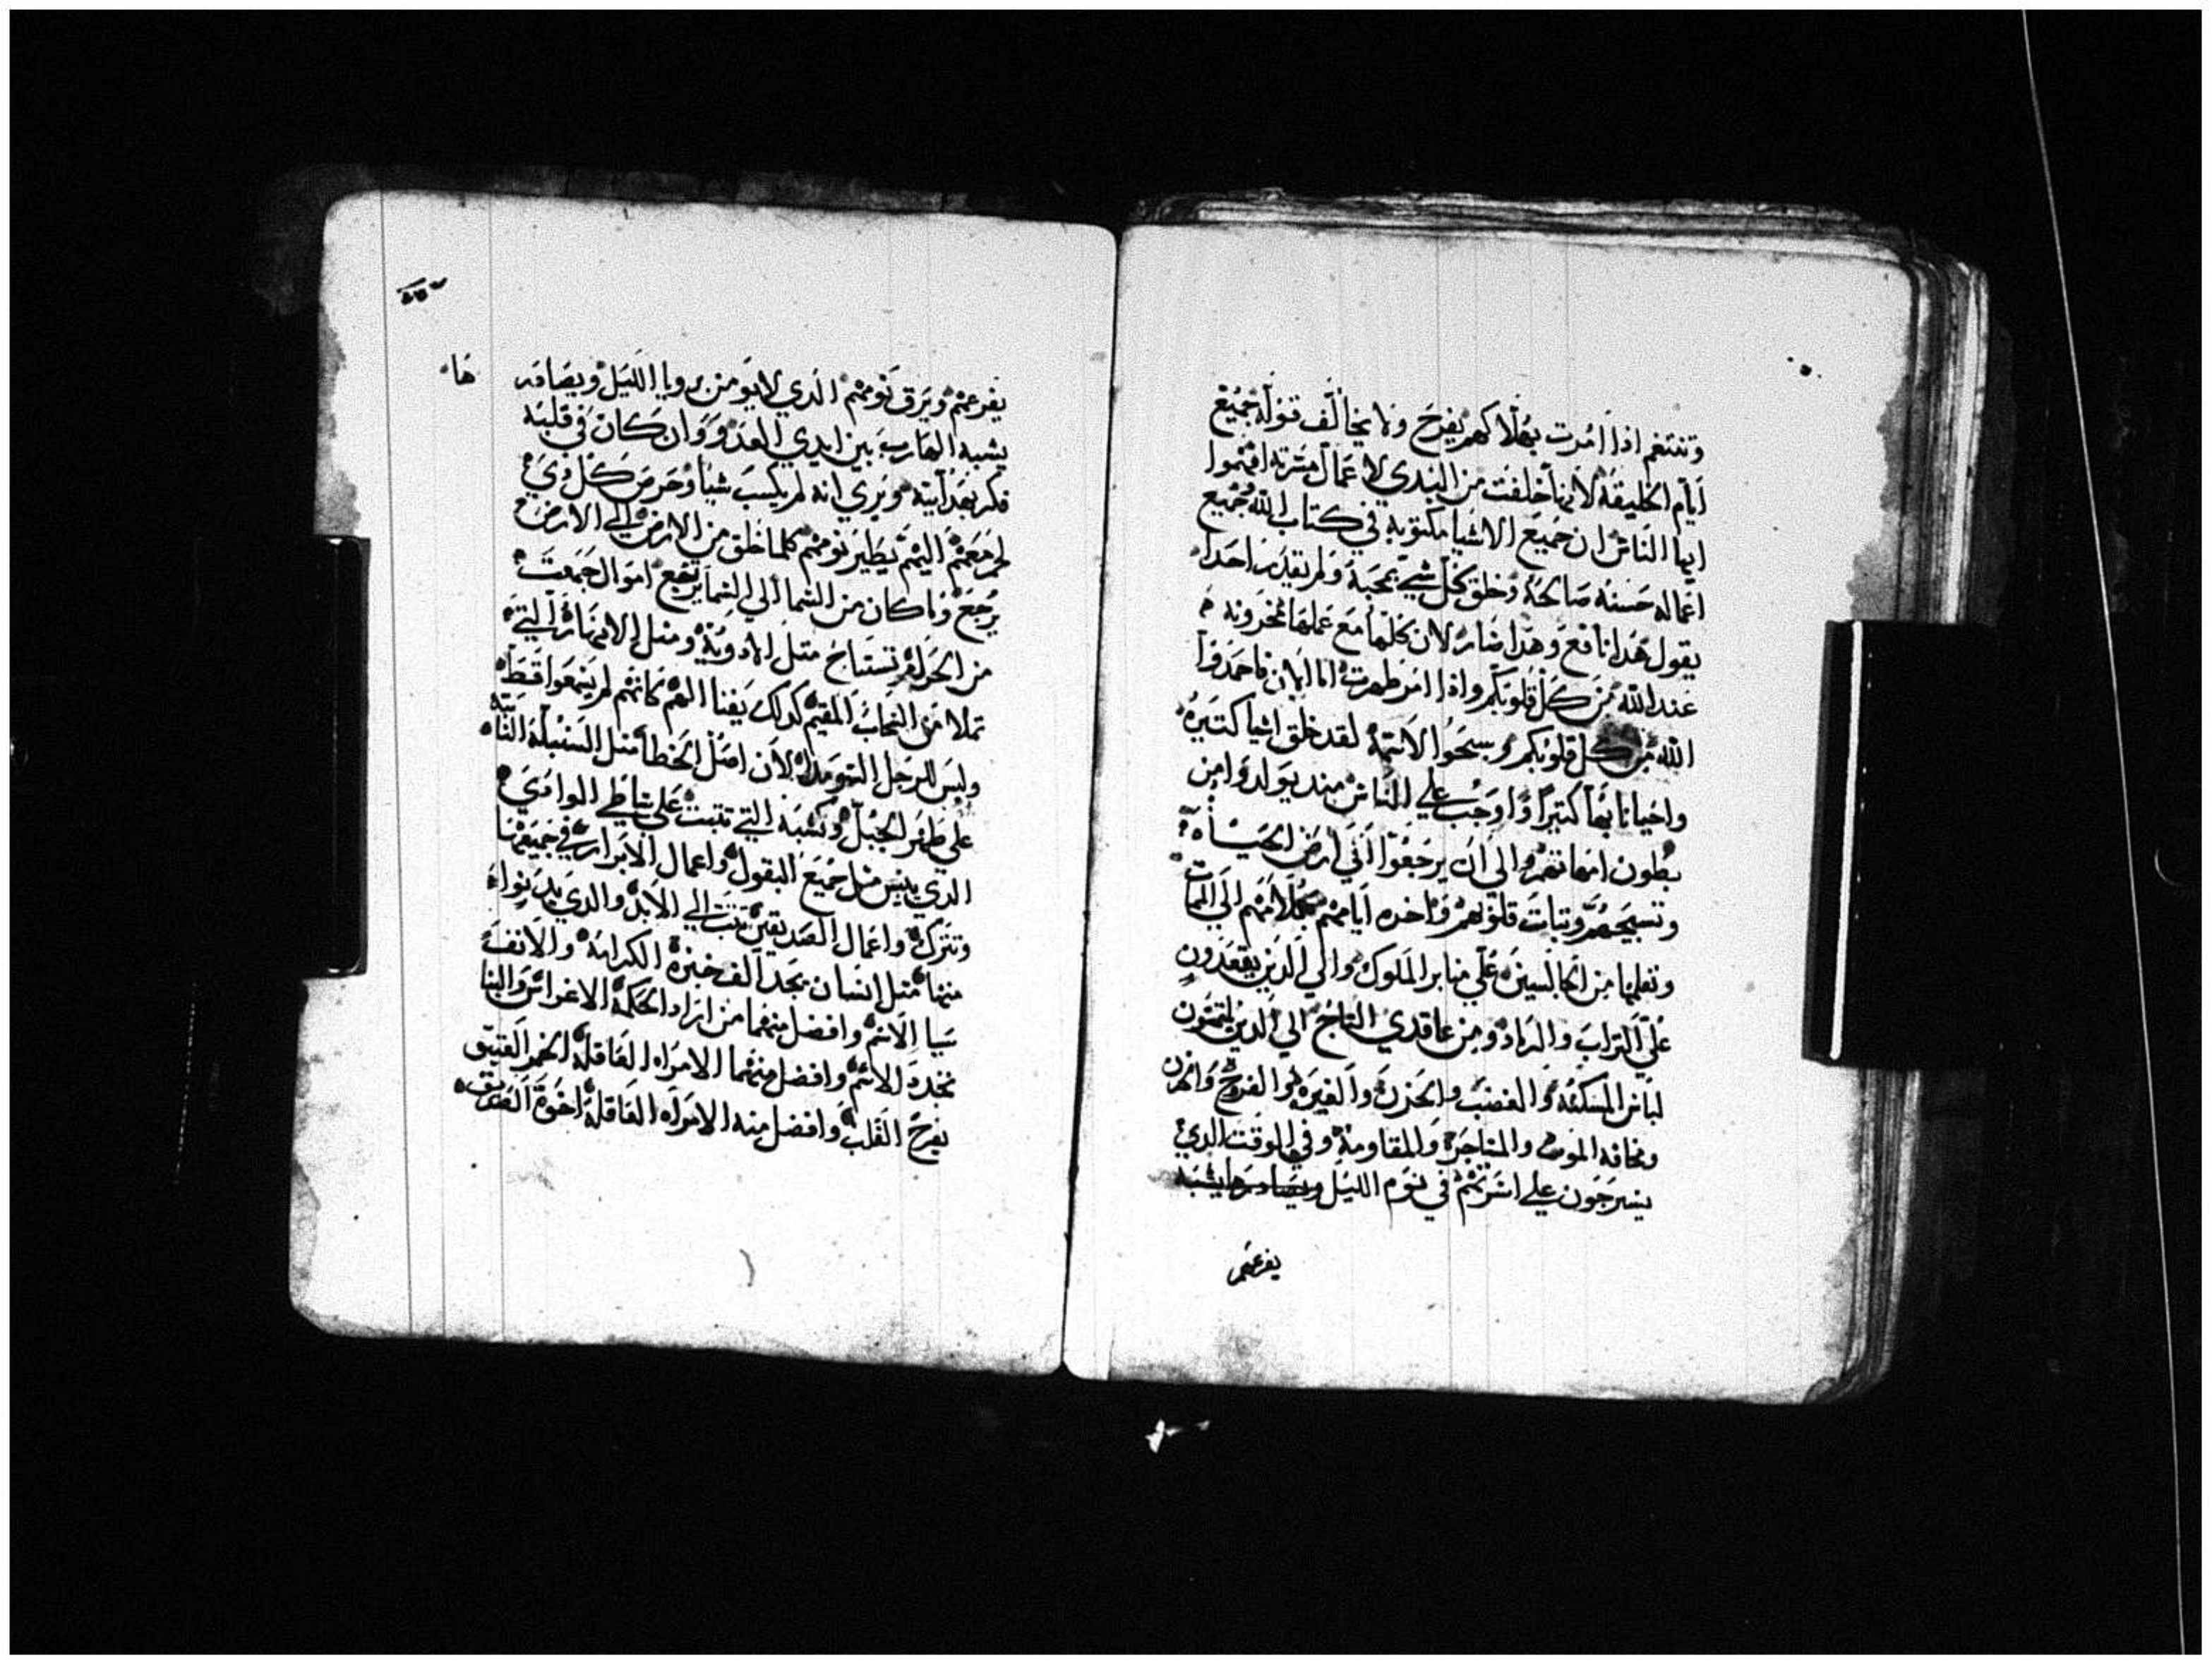 وتنتغم اذا امرت بهلاكهم يفرح ولا يخالف قوله جميع
ايام الخليقة لانها خلقت من البدي لاعمال مسرته افهموا
ايها الناس ان جميع الاشيا مكتوبه في كتاب الله جميع
اعماله حسنه صالحة وخلق كل شي بمحبة ولم يقدر احدا
يقول هدا نافع وهدا ضار لان كلها مع عملها مخزونه
عند الله من كل قلوبكم واذا امر ظهرت اما الان فاحمدوا
الله من كل قلوبكم وسبحوا لاسمه لقد خلق اشيا كتيره
واحيانا بها كتيرا واوجب علي الناس مند يولدوا من
بطون امهاتهم الي ان يرجعوا الي ارض الحياه
وتسبيحهم وتبات قلوبهم واخره ايامهم الي الممات
وتعلمها من الجالسين علي منابر الملوك والي الدين يقعدون
علي التراب والرماد ومن عاقدي التاج الي الدين يلبسون
لباس المسكنه والغضب والحزن والغيره والفزع
ومخافه الموت والمتاجرة والمقاومة وفي الوقت الدي
يسرجون علي اسرتهم في نوم الليل
يفزعهم
يفزعهم ويرق نومهم الدي لايومن برويا الليل ويصادر ها
يشبه الهارب بين ايدي العدو وان كان في قلبه
فكر بعد ابيه ويري انه لم يكسب شيا وحرص كل دي
لحم معهم اليهم يطير نومهم كلما خلق من الارض الي الارض
يرجع وما كان من السما الي السما يرتفع اموال جمعت
من الحرام تستباح متل الاودية ومتل الانهار التي
تملا من السحاب المقيم كدلك يفنا
وليس للرجل لان اصل الخطا متل السنبلة النابته
علي ظهر الجبل وتشبه التي تنبت علي شاطي الوادي
الدي ييبس متل جميع البقول واعمال الابرار في جميعها
وتتزكا واعمال الصديقين تتبت الي الابد والدي
منهما متل انسان يجد الف خبزة الكرامة
سيا الاسم وافضل منهما من اراد الحكمة الاغراس والبنا
تجدد الاسم وافضل منهما الامراه العاقلة الخمر العتيق
يفرح القلب وافضل منه الامراه العاقلة اخوة